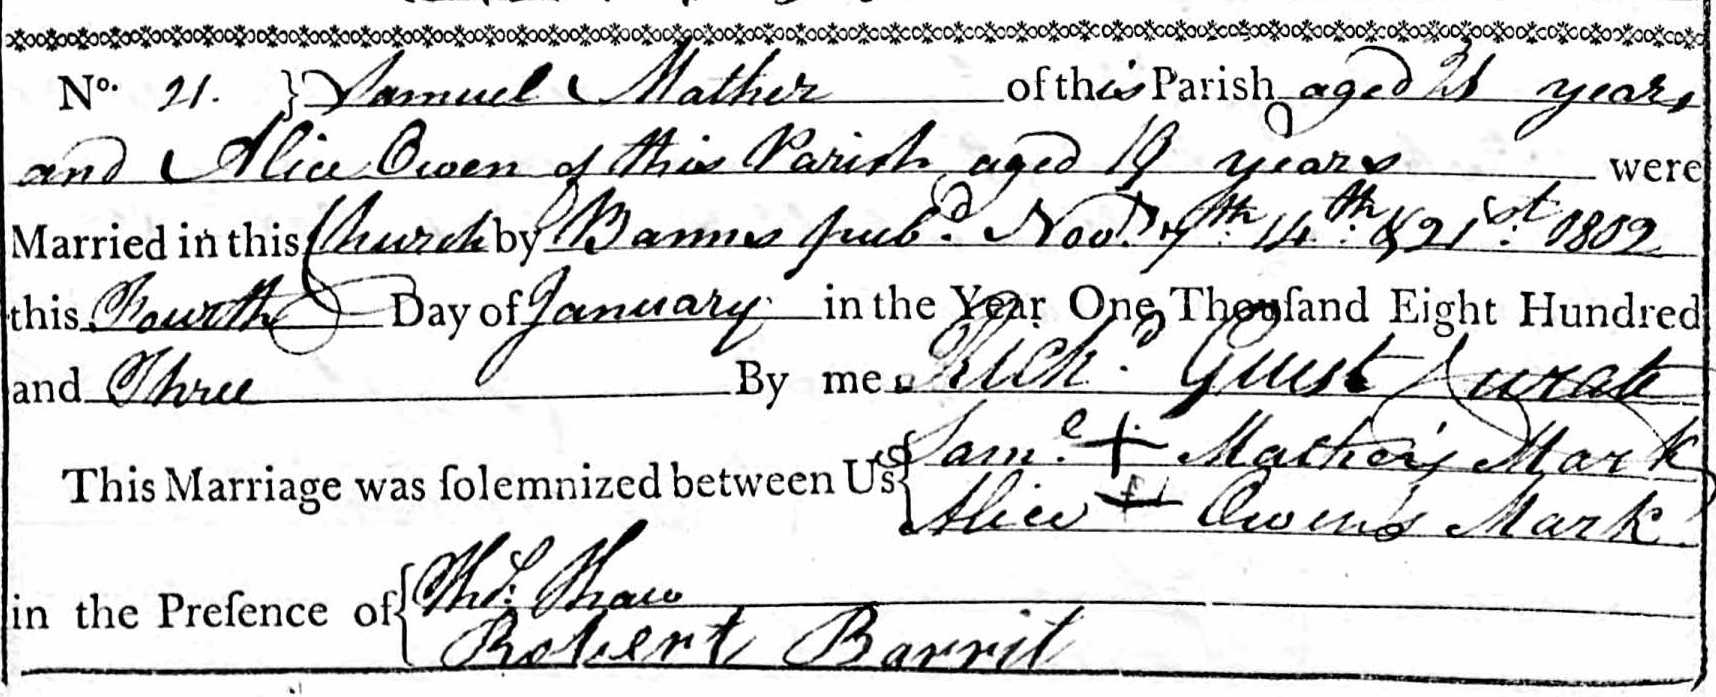 No. 21. } Samuel Mather of this Parish aged 21 years
and Alice Owen of this Parish aged 19 years were
Married in this Church by Banns pubd. Novr. 7th. 14th. & 21st. 1802
this Fourth Day of January in the Year One Thouſand Eight Hundred
and Three By me Richd. Guest Curate
This Marriage was ſolemnized between Us { Saml. + Mather's Mark
Alice + Owen's Mark
in the Preſence of { Thos. Shaw
Robert Barrit